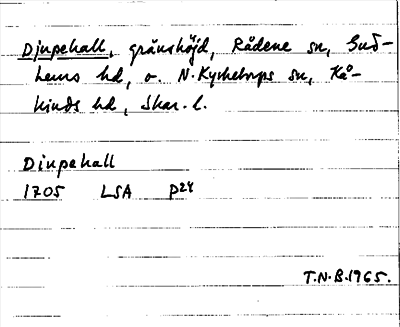 Djupehall, gränshöjd, Rådene sn, Gud-
hems hd, o. N. Kyrketorps sn, Kå-
kinds hd, Skar. l.
Diupehall
1705 LSA P24
T.N.B. 1965.